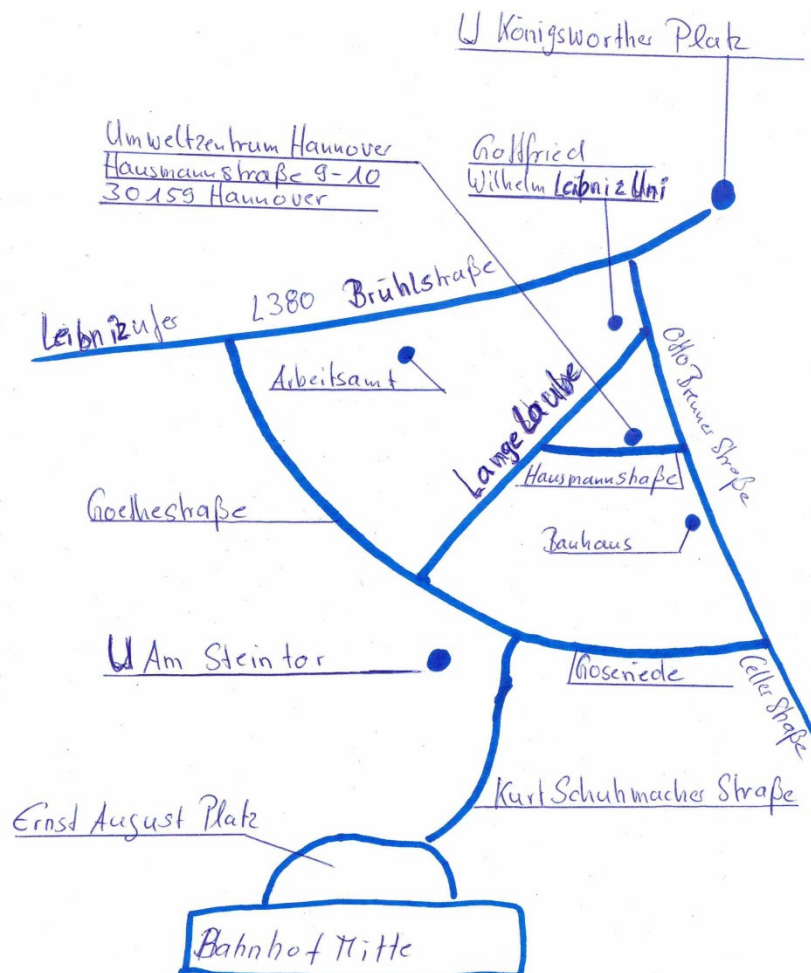 U Königsworther Platz
Umweltzentrum Hannover
Hausmannstraße 9-10
30159 Hannover
Gottfried
Wilhelm Leibniz Uni
Leibnizufer
L380 Brühlstraße
Arbeitsamt
Lange Laube
Otto Brenner Straße
Hausmannstraße
Goethestraße
Bauhaus
U Am Steintor
Goseriede
Celler Straße
Kurt Schuhmacher Straße
Ernst August Platz
Bahnhof Mitte